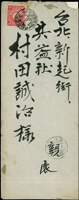 台北新起街
共益社
村田誠治様
親展